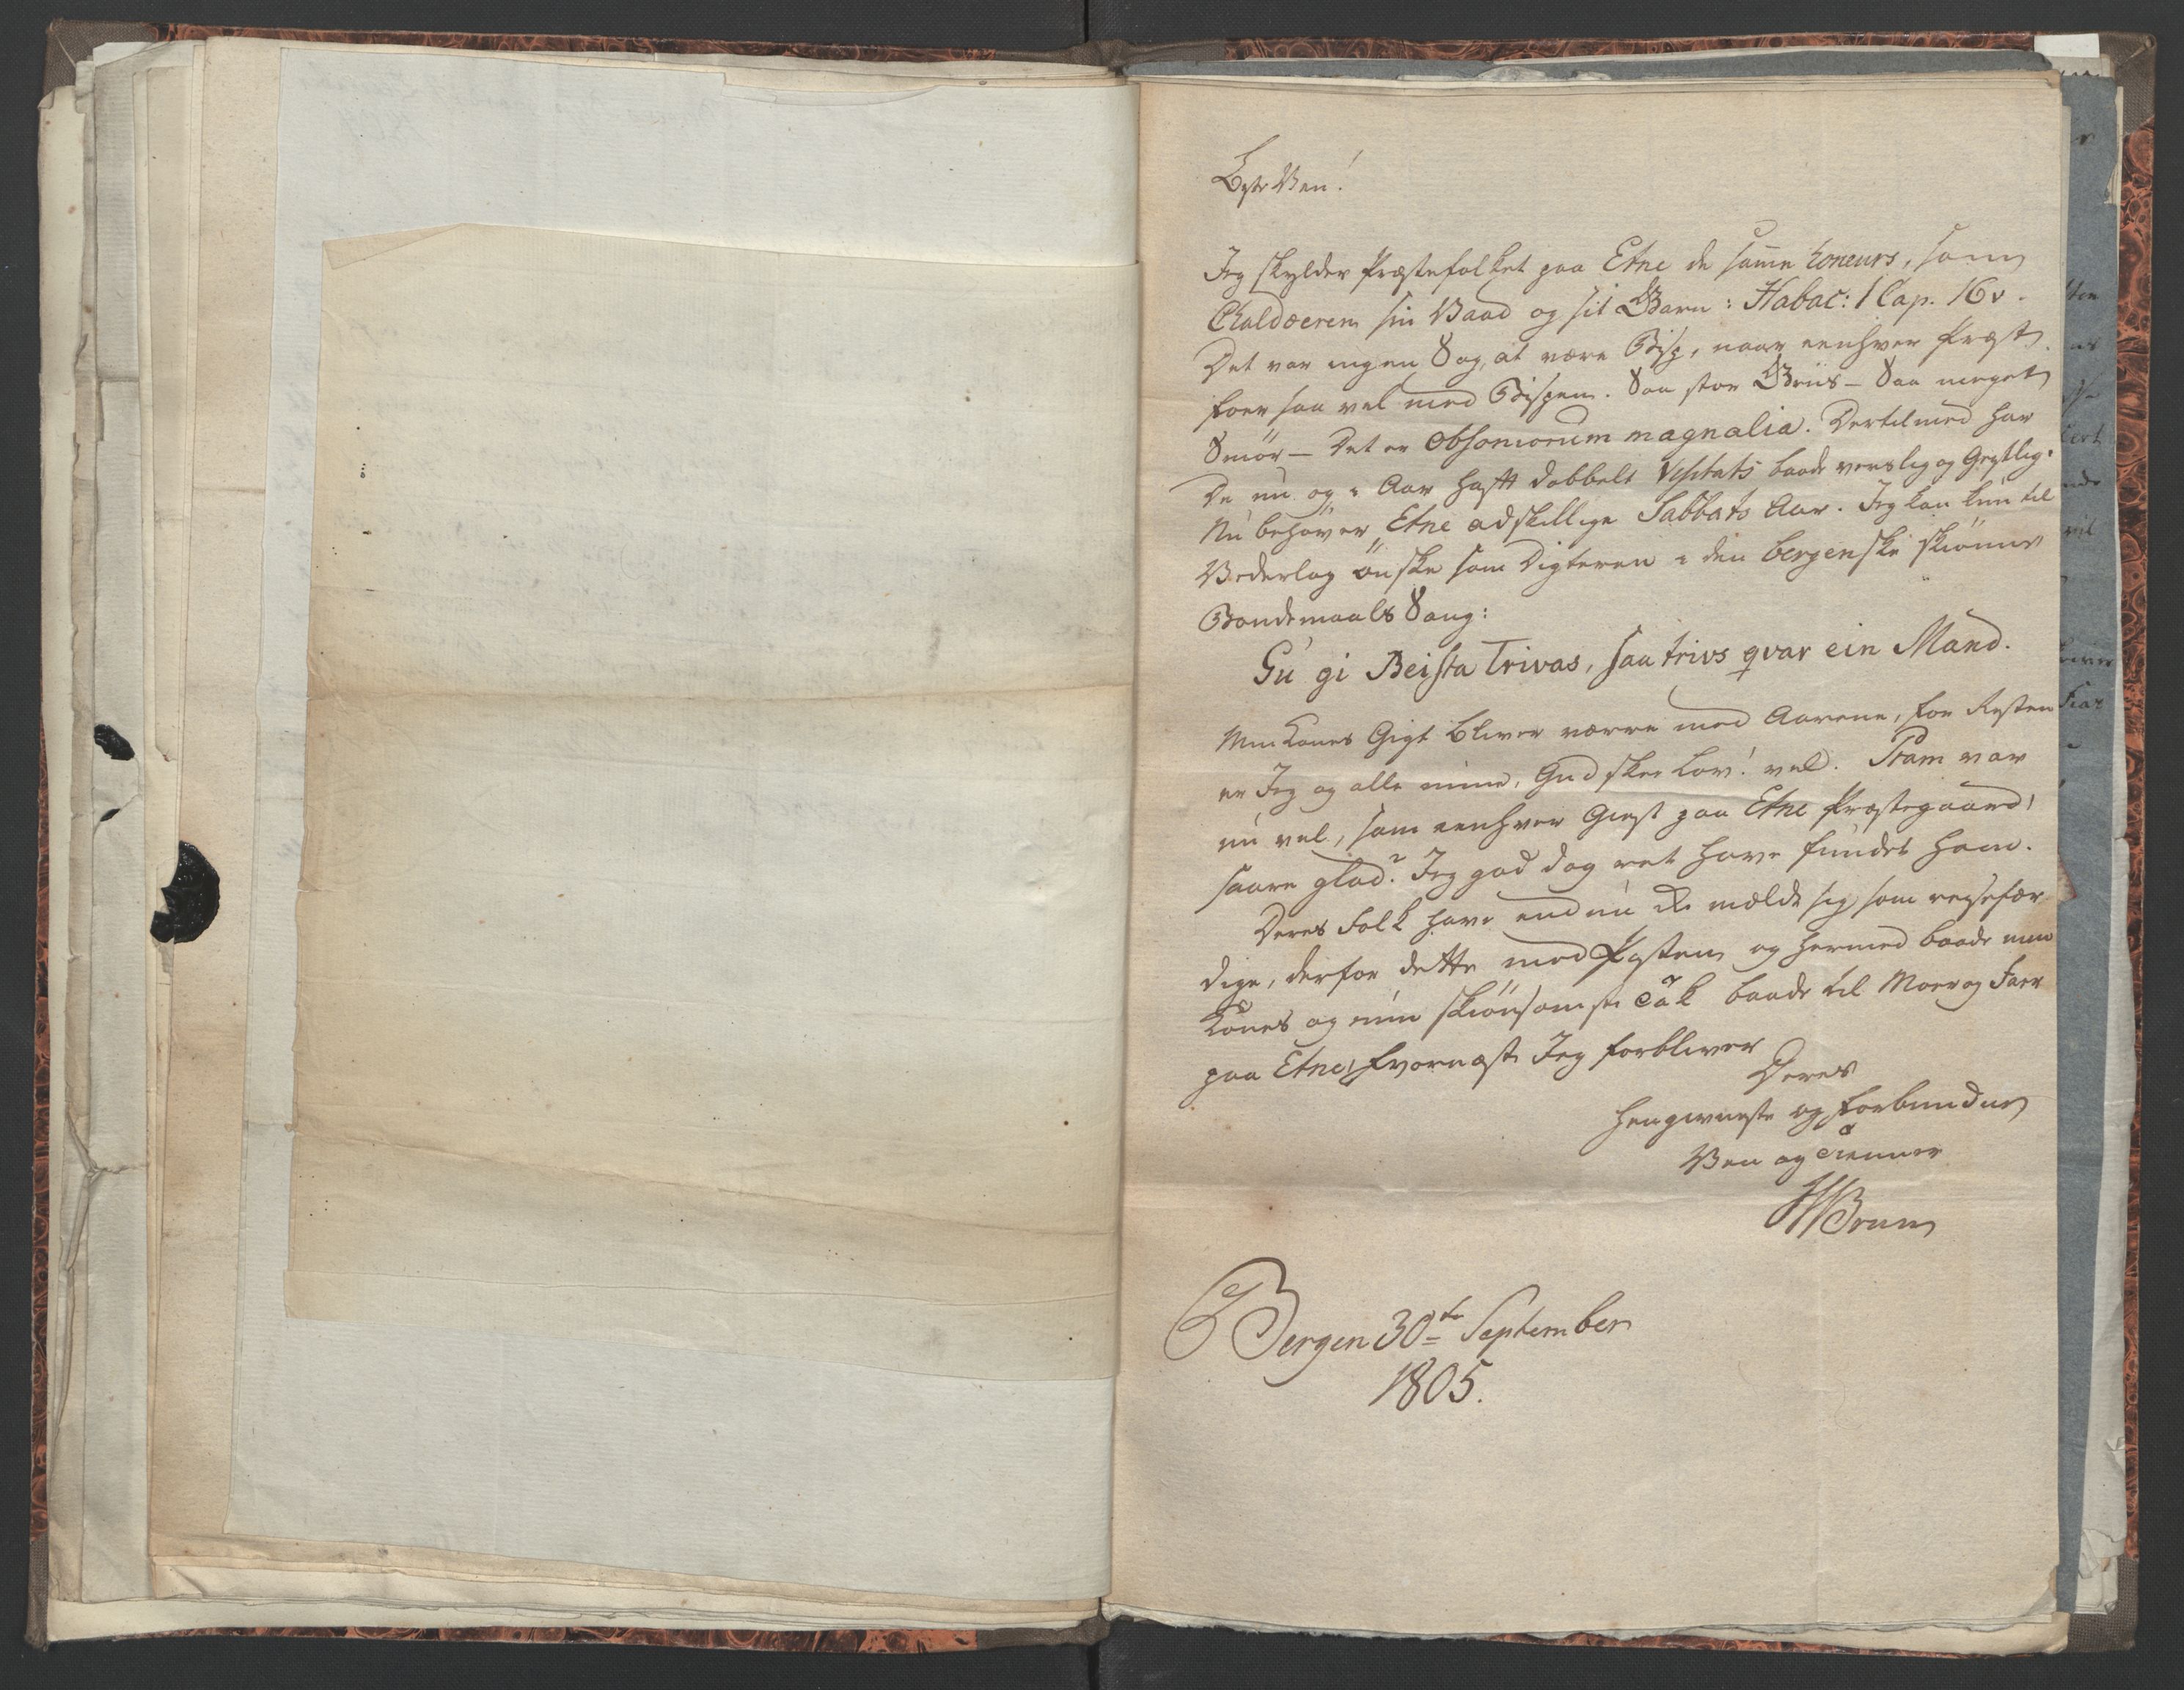 Beste Ven!
Jeg skylder Præstefolket paa Etne de samme honeurs, som
Chaldæeren sin Vaad og sit Garn: Habac: 1 Cap. 16 v.
Det var ingen Sag, at være Bisp, naar eenhver Præst
foer saa vel med Bispen. Saa stor Griis - Saa meget
Smör - Det er Obsoniorum magnalia. Dertilmed har
De nu og i Aar haft dobbelt Visitats baade verslig og Gejstlig.
Nu behöver Etne adskillige Sabbats Aar. Jeg kan kun til
Vederlag önske som Digteren i den bergenske skiönne
Bondemaals Sang:
Gu' gi Beista Trivas, saa trivs qvar ein Mand.
Min Kones Gigt bliver værre med Aarene, for Resten
er Jeg og alle mine, Gud skee Lov! vel. Fram var
nu vel, som eenhver Giest paa Etne Præstegaard,
saare glad? Jeg gad dog vet have fundet ham.
Deres Folk have endnu ei meldt sig som reisefær
dige, derfor dette med Posten og hermed baade min
Kones og min skiönsomste Tak baade til Moer og Faer
paa Etne, hvornæst Jeg forbliver
Deres
hengivneste og forbundne
Ven og Tienner
JNBrun
Bergen 30te September
1805.